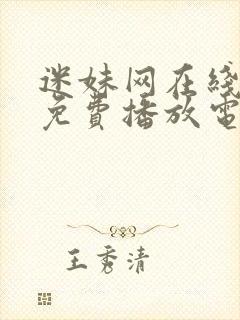 迷妹网在线
免費播放電
王秀清